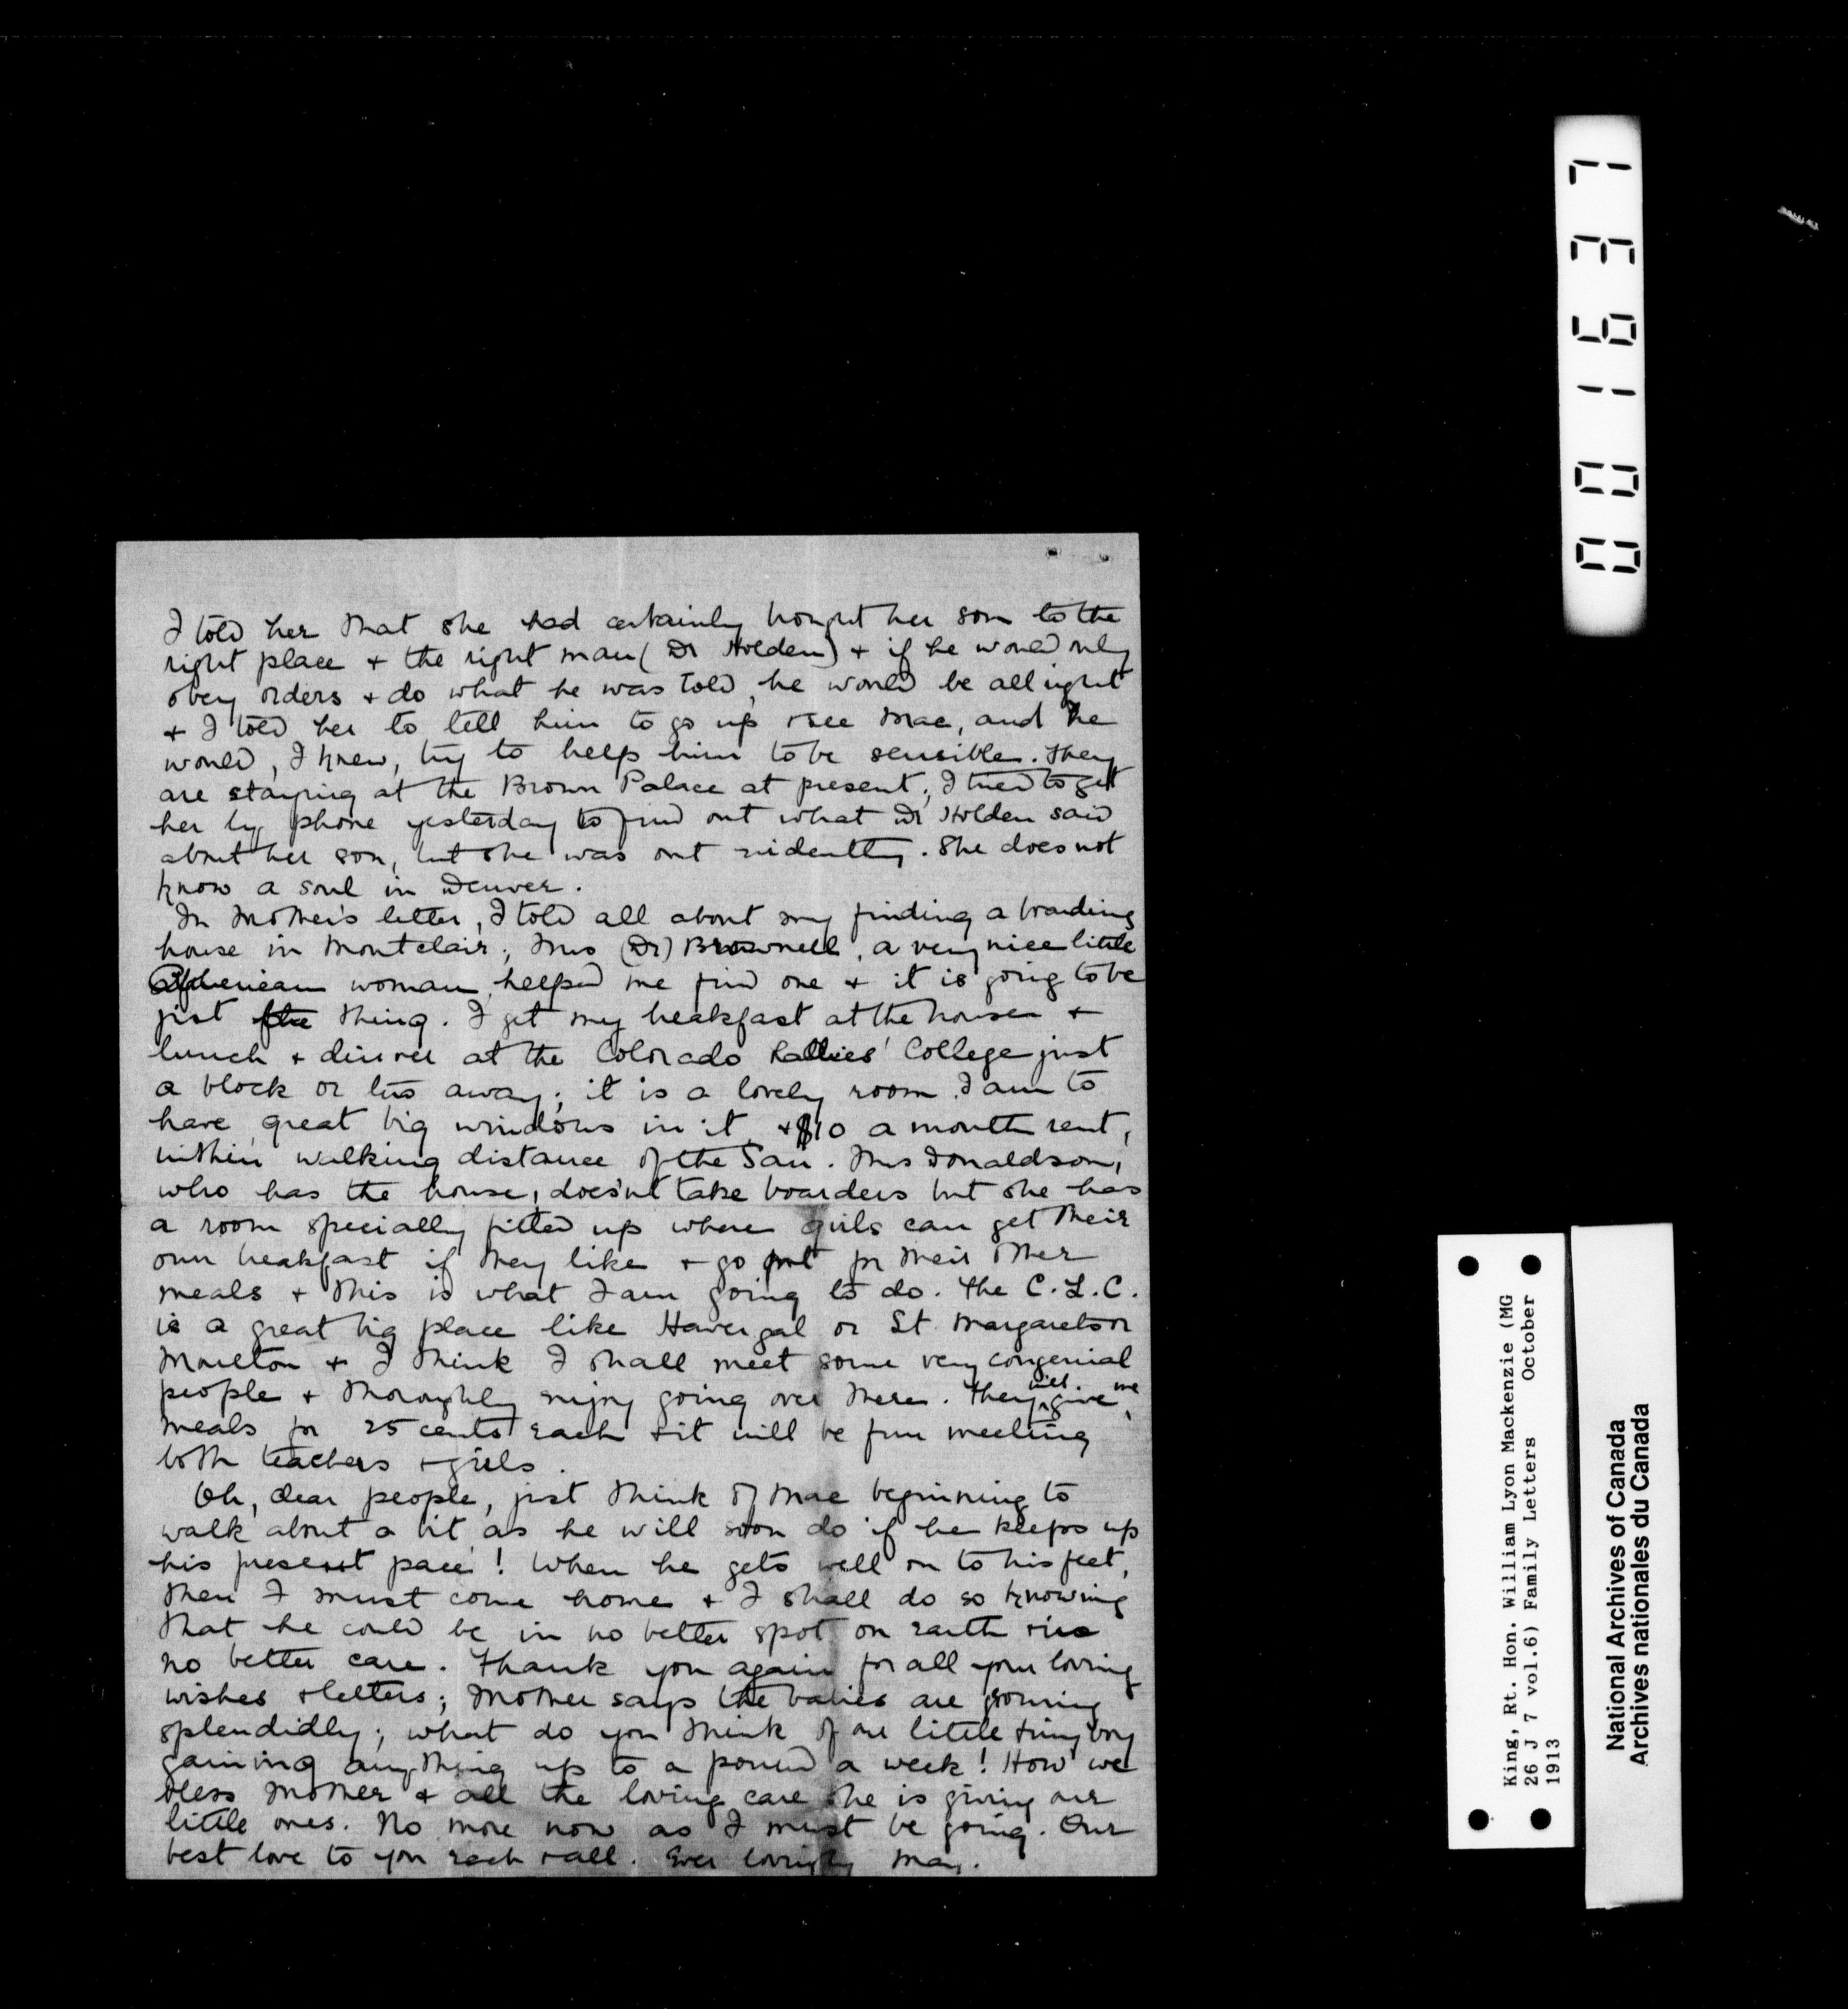 I told her that she had certainly brought her son to the
right place + the right man (Dr Holden) + if he would only
obey orders + do what he was told, he would be all right
+ I told her to tell him to go up + see Mac, and he
would, I knew, try to help him to be sensible. They
are staying at the Brown Palace at present; I tried to get
her by phone yesterday to find out what Dr Holden said
about her son, but she was out evidently. She does not
know a soul in Denver.
In Mother's letter, I told all about my finding a boarding
house in Montclair; Mrs (Dr) Brownell, a very nice little
American woman, helped me find one + it is going to be
just the thing. I get my breakfast at the house +
lunch + dinner at the Colorado Ladies' College just
a block or two away; it is a lovely room I am to
have, great big windows in it, + $10 a month rent,
within walking distance of the San. Mrs Donaldson,
who has the house, does'nt take boarders but she has
a room specially fitted up where girls can get their
own breakfast if they like + go out for their other
meals + this is what I am going to do. The C.L.C.
is a great big place like Havergal or St. Margarets or
Moulton + I think I shall meet some very congenial
people + thoroughly enjoy going over there. They will give me
meals for 25 cents each + it will be fun meeting
both teachers + girls.
Oh, dear people, just think of Mac beginning to
walk about a bit as he will soon do if he keeps up
his present pace! When he gets well on to his feet,
then I must come home + I shall do so knowing
that he could be in no better spot on earth + in
no better care. Thank you again for all your loving
wishes + letters; Mother says the babies are growing
splendidly; what do you think of one little tiny boy
gaining anything up to a pound a week! How we
bless Mother + all the loving care she is giving our
little ones. No more now as I must be going. Our
best love to you each + all. Ever lovingly May.
001637
King, Rt. Hon. William Lyon Mackenzie (MG
26 J 7 vol.6) Family Letters October
1913
National Archives of Canada
Archives nationales du Canada